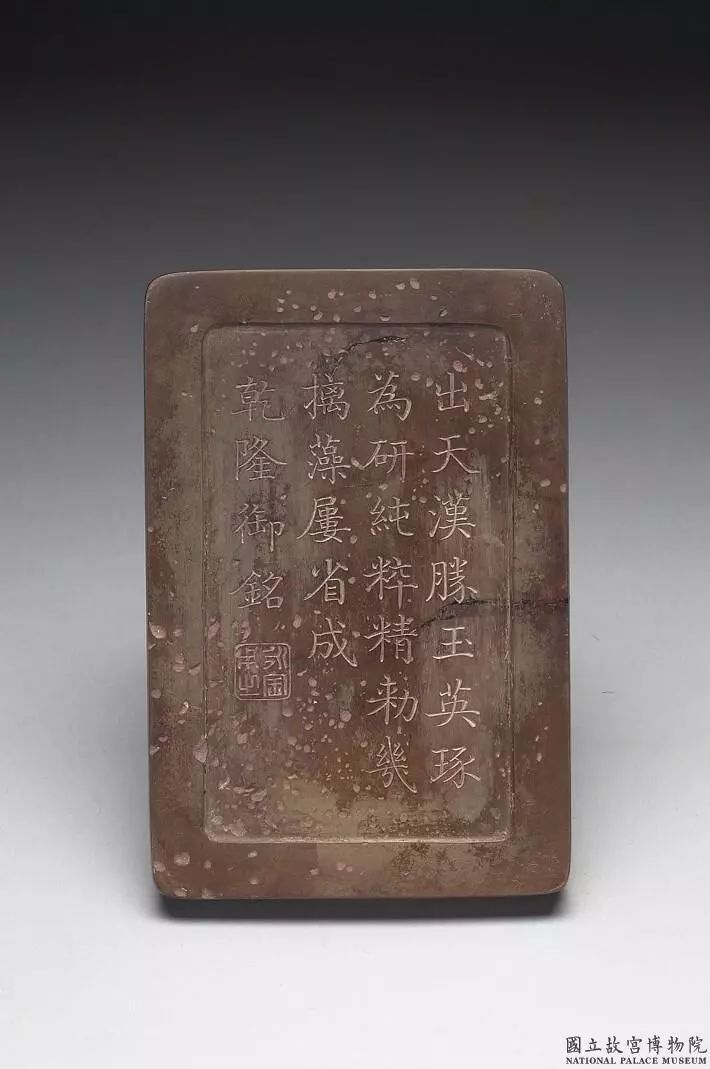 出天漢勝玉英琢
為研純粹精勑幾
摛藻屢省成
乾隆御銘
永寶用之
國立故宮博物院
NATIONAL PALACE MUSEUM